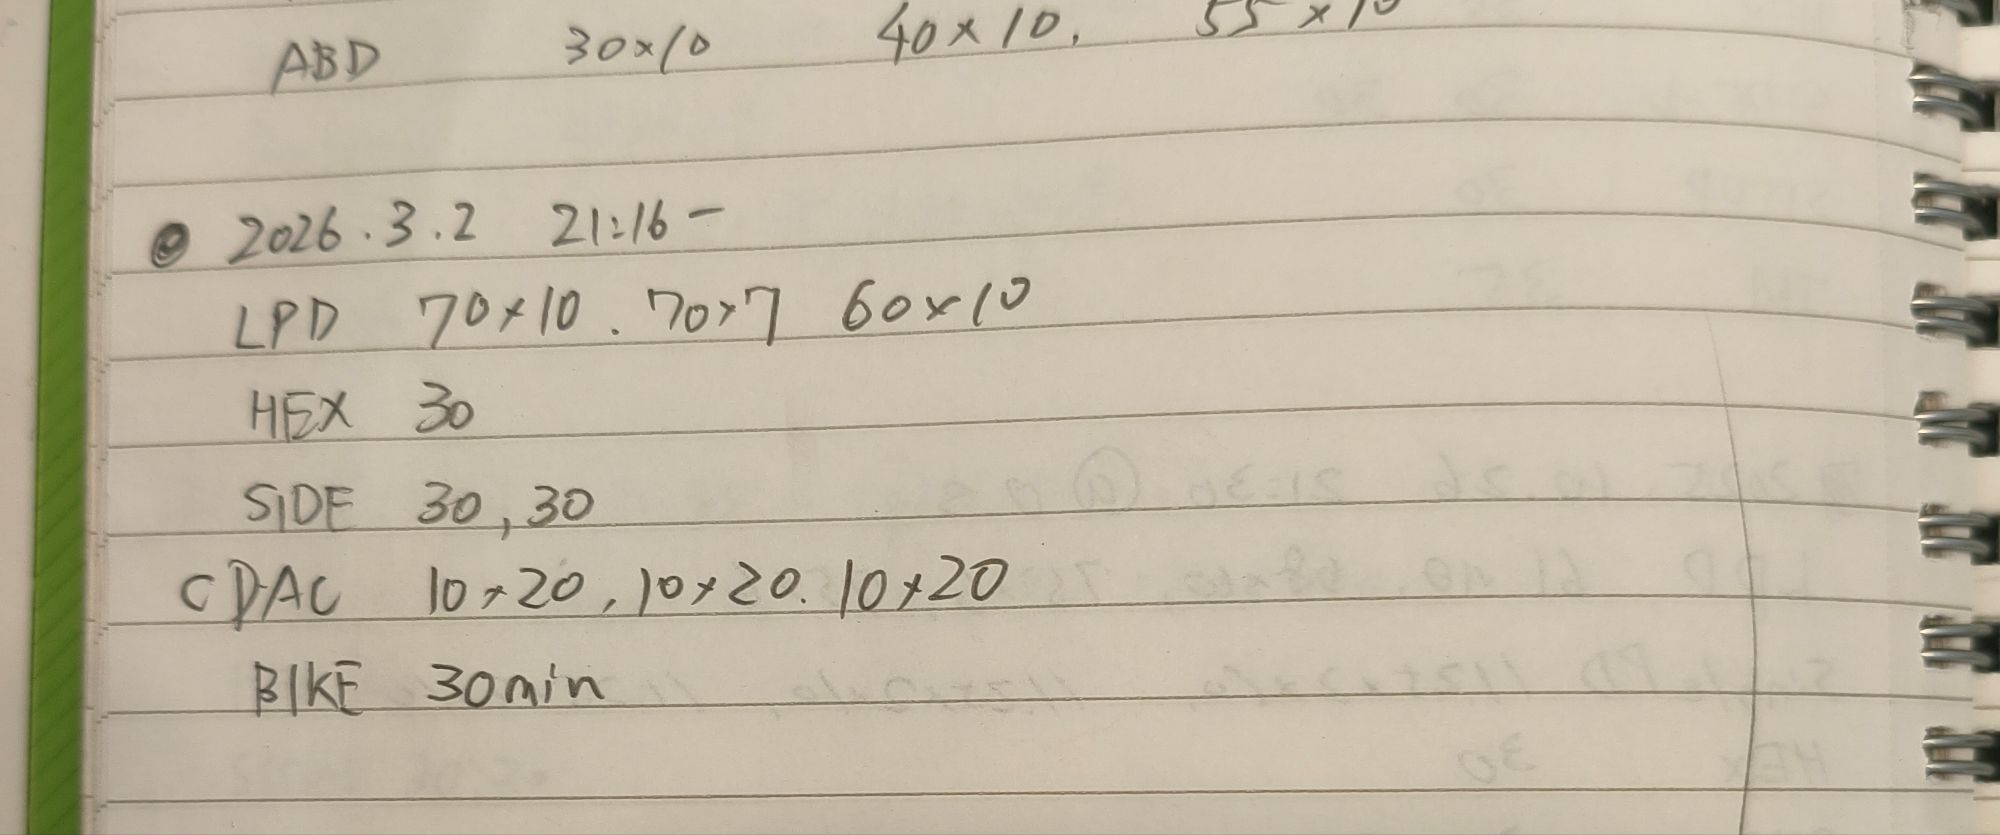 ABD 30×10 40×10, 55×10
2026.3.2 21:16-
LPD 70×10. 70×7 60×10
HEX 30
SIDE 30, 30
CDAC 10×20, 10×20. 10×20
BIKE 30min